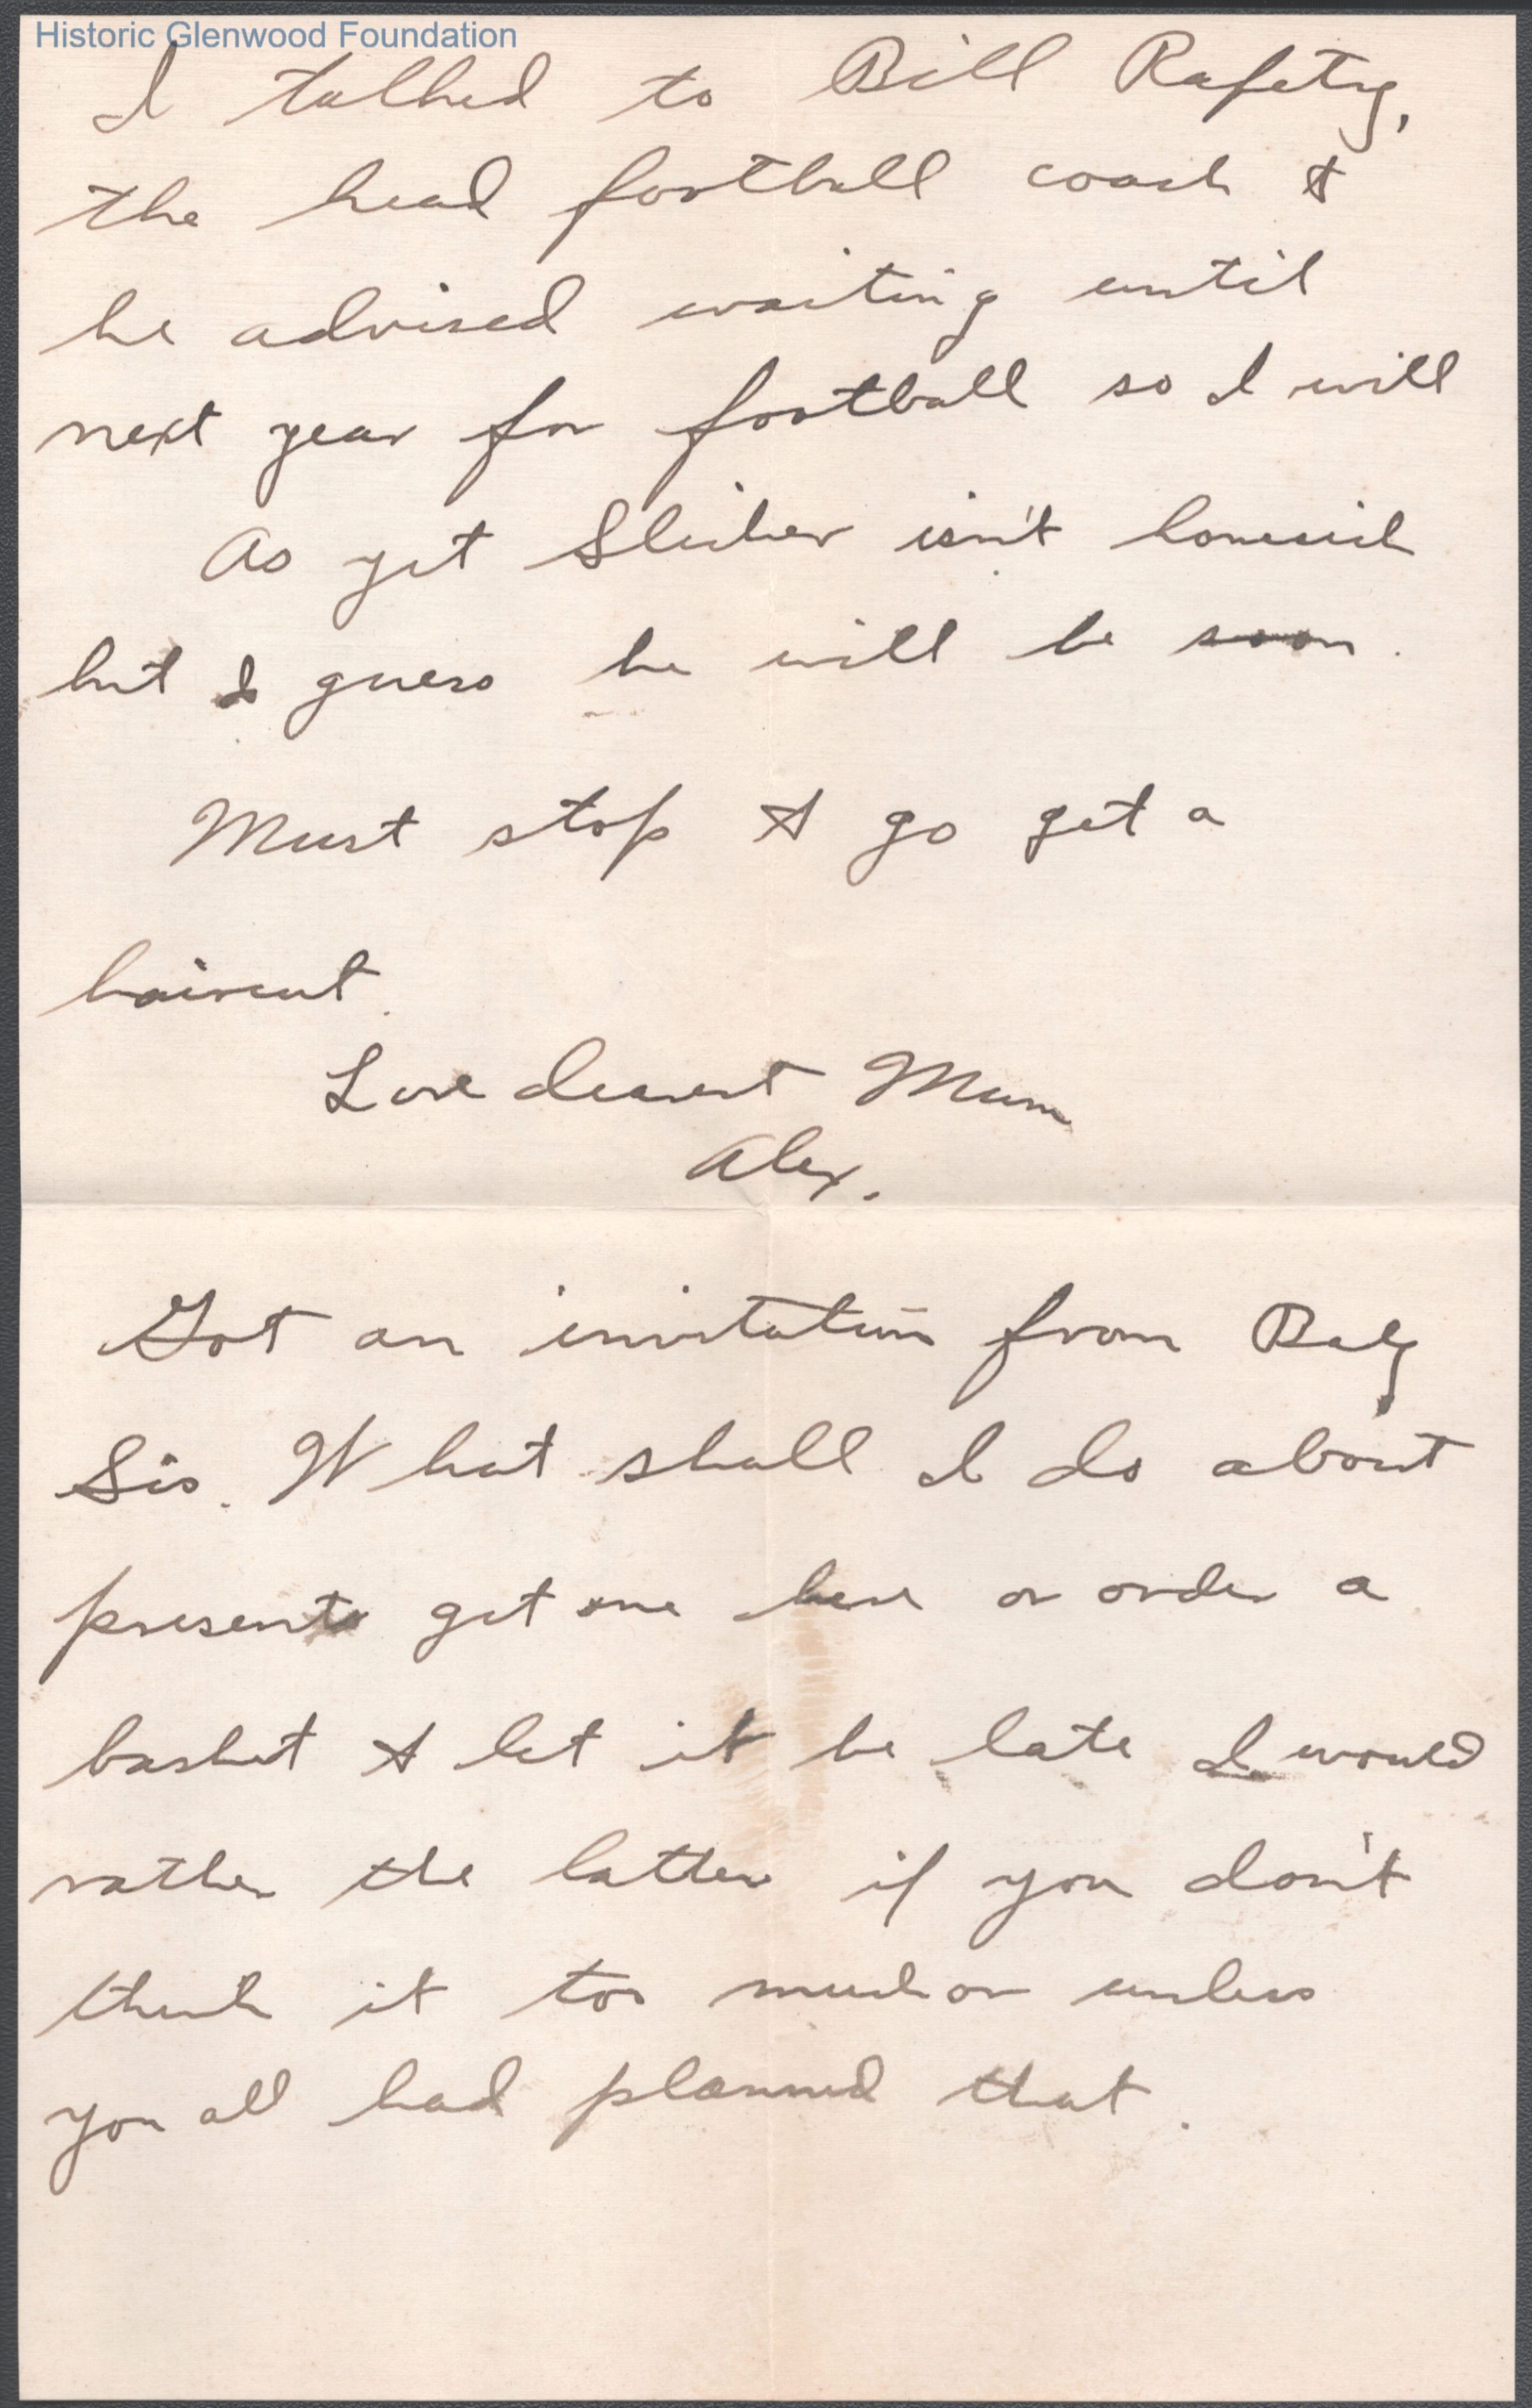 Historic Glenwood Foundation
I talked to Bill Rafetry,
the head football coach &
he advised waiting until
next year for football so I will
As yet Sleiker isn't homesick
but I guess he will be soon.
Must stop & go get a
haircut.
Love dearest Mum
Alex.
Got an invitation from
Sis. What shall I do about
present get one here or order a
basket & let it be late I would
rather the latter if you don't
think it too much or unless
you all had planned that.